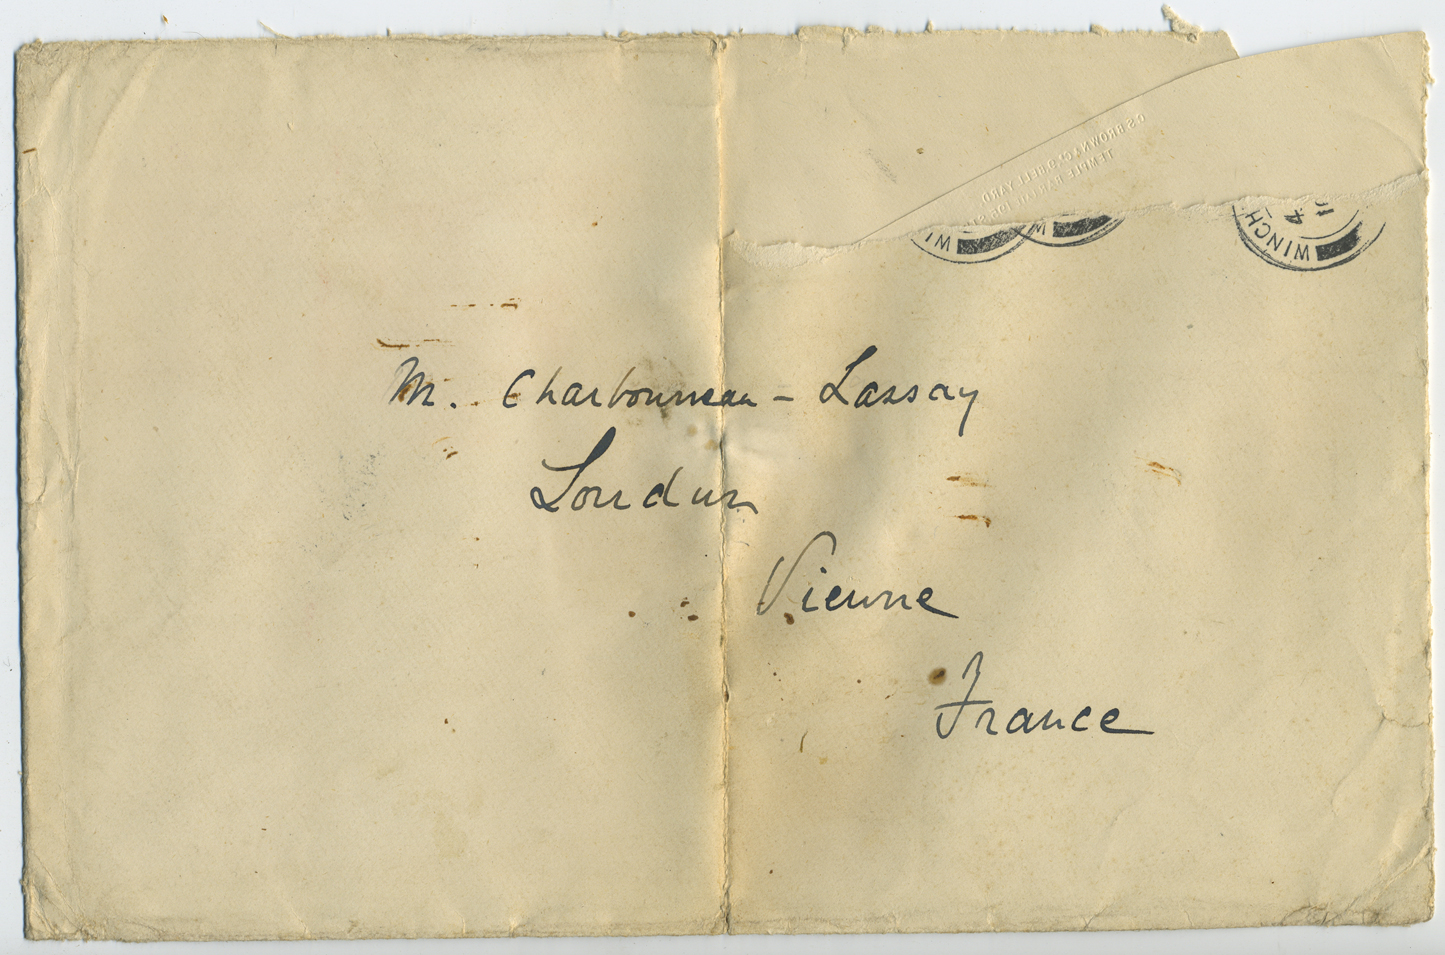 C.S. BROWN & Co. 9 BELL YARD
TEMPLE BAR
WI
W
WINCH
4
M. Charbonneau - Lassay
Loudun
Vienne
France